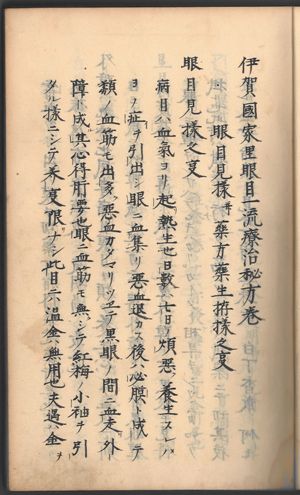 伊賀國家里眼目一流療治秘方巻
眼目見様并藥方藥生拵様之事
眼目見様之事
病目ハ血氣ヨリ起熱生也日數六七日煩悪養生スレハ
ヨノ症ヲ引出シ眼ニ血集リ悪血退カス後ハ必膜ト成テ
頬ノ血筋モ出タ悪血カタマリツヱテ黒眼ノ間ニ血走外
障ト成其心得肝要也眼ニ血筋モ無シテ紅梅ノ小袖ヲ引
タル様ニシテ赤事限ナシ此目ニハ温金ハ無用也夫遇ハ金ヲ